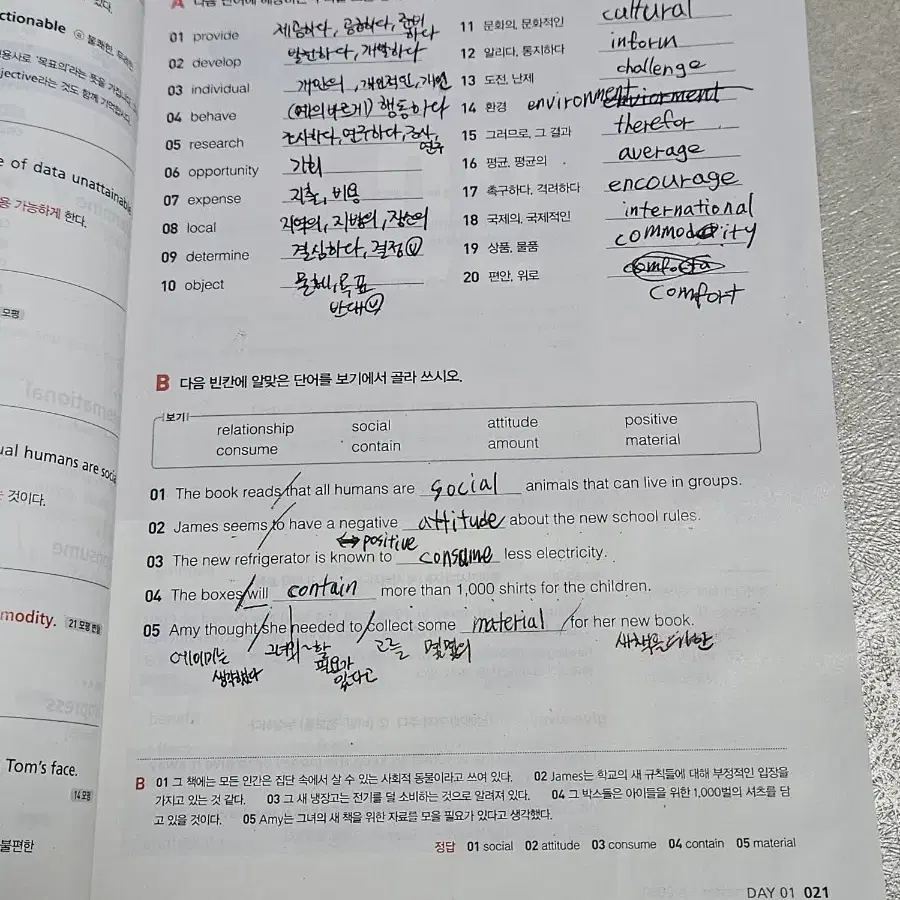 ctionable ⓐ 불쾌한, 무례한
jective라는 것도 함께 기억합시다.
e of data unattainable
용 가능하게 한다.
모평
ual humans are social
는 것이다.
modity. 21 모평 변형
Tom's face.
14 모평
불편한
A
01 provide 제공하다, 공급하다, 준비하다
02 develop 발전하다, 개발하다
03 individual 개인의, 개인적인, 개인
04 behave (예의바르게) 행동하다
05 research 조사하다, 연구하다, 조사, 연구
06 opportunity 기회
07 expense 지출, 비용
08 local 지역의, 지방의, 장소의
09 determine 결심하다, 결정ⓥ
10 object 물체, 목표
반대ⓥ
11 문화의, 문화적인 cultural
12 알리다, 통지하다 inform
13 도전, 난제 challenge
14 환경 environment enviorment
15 그러므로, 그 결과 therefor
16 평균, 평균의 average
17 촉구하다, 격려하다 encourage
18 국제의, 국제적인 international
19 상품, 물품 commodity
20 편안, 위로
comfort
B 다음 빈칸에 알맞은 단어를 보기에서 골라 쓰시오.
보기
relationship social attitude positive
consume contain amount material
01 The book reads that all humans are social animals that can live in groups.
02 James seems to have a negative attitude about the new school rules.
↔ positive
03 The new refrigerator is known to consume less electricity.
04 The boxes will contain more than 1,000 shirts for the children.
05 Amy thought she needed to collect some material for her new book.
에이미는 그녀의 ~할 고를 몇몇의 새책을 위한
생각했다 필요가
있다고
B 01 그 책에는 모든 인간은 집단 속에서 살 수 있는 사회적 동물이라고 쓰여 있다. 02 James는 학교의 새 규칙들에 대해 부정적인 입장을
가지고 있는 것 같다. 03 그 새 냉장고는 전기를 덜 소비하는 것으로 알려져 있다. 04 그 박스들은 아이들을 위한 1,000벌의 셔츠를 담
고 있을 것이다. 05 Amy는 그녀의 새 책을 위한 자료를 모을 필요가 있다고 생각했다.
정답 01 social 02 attitude 03 consume 04 contain 05 material
DAY 01 021